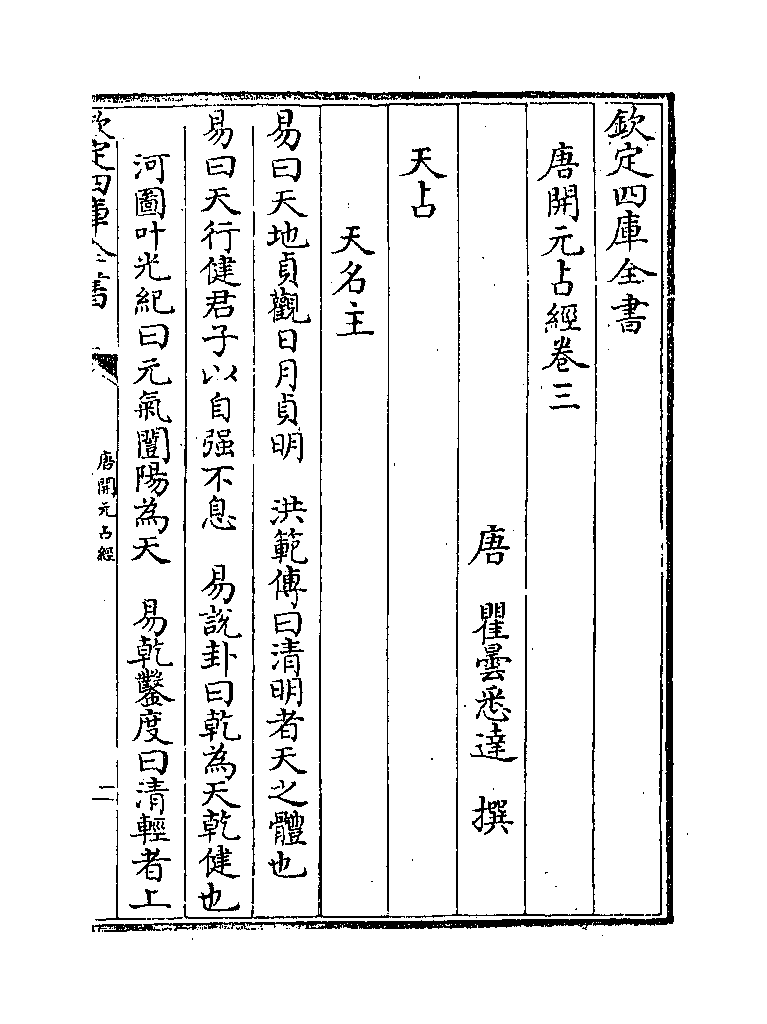 欽定四庫全書
唐開元占經卷三
唐 瞿曇悉達 撰
天占
天名主
易曰天地貞觀日月貞明 洪範傳曰清明者天之體也
易曰天行健君子以自强不息 易說卦曰乾為天乾健也
河圖叶光紀曰元氣闓陽為天 易乾鑿度曰清輕者上
欽定四庫全書
唐開元占經
二